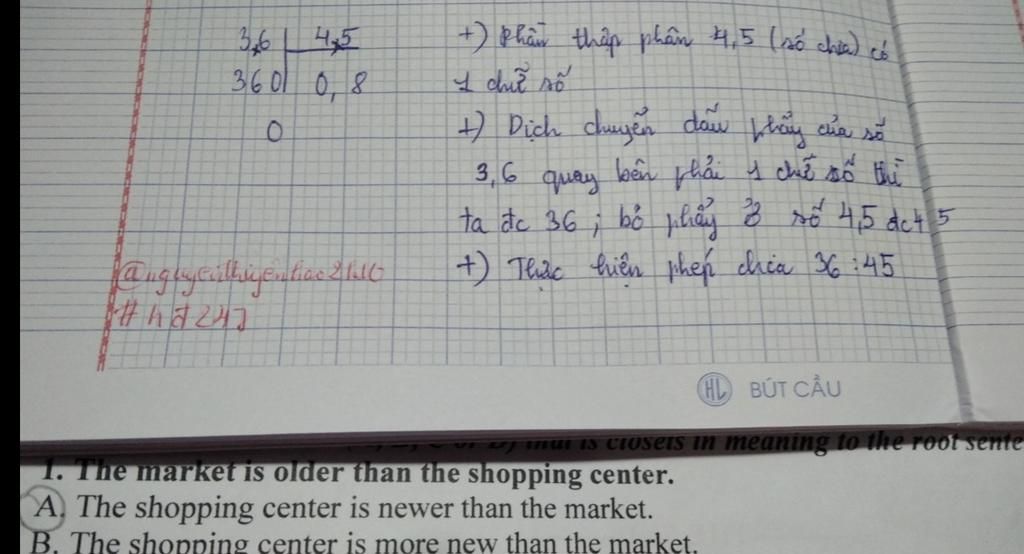 3,6 4,5
360 0,8
0
+) Phần thập phân 4,5 (số chia) có
1 chữ số
+) Dịch chuyển dấu phẩy của số
3,6 quay bên phải 1 chữ số thì
ta đc 36 ; bỏ phẩy ở số 4,5 đc 45
+) Thực hiện phép chia 36 : 45
#hđ247
HL BÚT CẦU
that is closets in meaning to the root sente
1. The market is older than the shopping center.
A. The shopping center is newer than the market.
B. The shopping center is more new than the market.